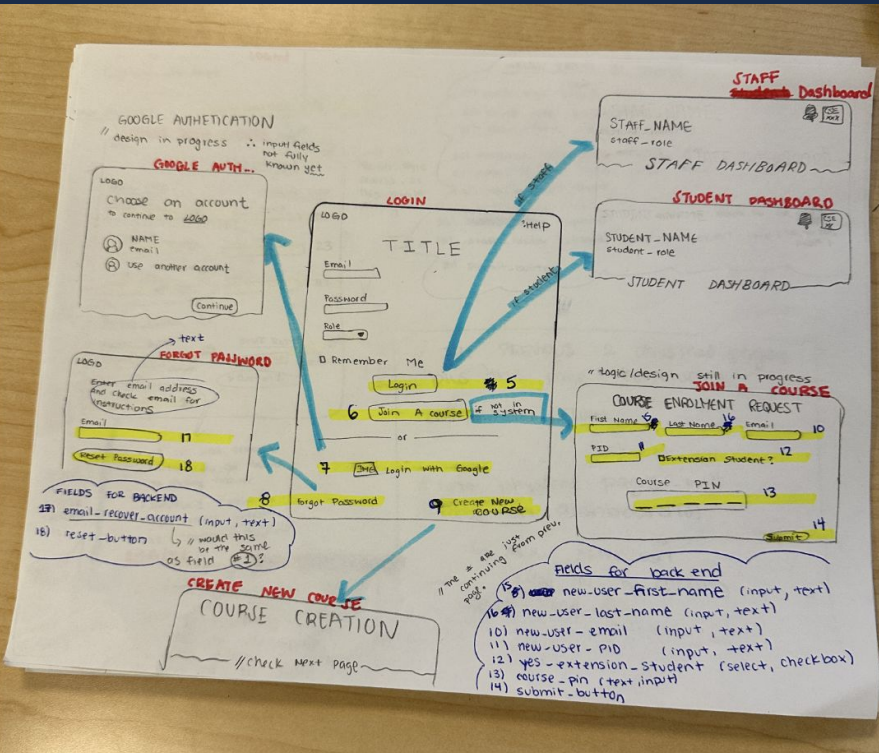 GOOGLE AUTHETICATION
// design in progress ∴ input fields
not fully
known yet
GOOGLE AUTH...
LOGO
Choose an account
to continue to LOGO
NAME
email
use another account
Continue
→ text
FORGOT PASSWORD
LOGO
Enter email address
and check email for
instructions
Email
17
Reset Password 18
FIELDS FOR BACKEND
17) email_recover_account (input, text)
18) reset_button
// would this
be the same
as field #1?
LOGIN
LOGO
:Help
TITLE
Email
Password
Role
Remember Me
Login 5
6 Join A course
if not in
system
or
7 IMG Login with Google
8 Forgot Password
9 Create New
COURSE
if staff
if student
CREATE NEW COURSE
COURSE CREATION
// check next page
STAFF
Dashboard
STAFF_NAME
staff-role
STAFF DASHBOARD
STUDENT DASHBOARD
STUDENT_NAME
student-role
STUDENT DASHBOARD
// logic/design still in progress
JOIN A COURSE
COURSE ENROLMENT REQUEST
First Name Last Name 16 Email 10
PID 11
Extension Student? 12
Course PIN
13
14
Submit
// The # are just
continuing from prev.
page.
Fields for back end
15) new_user_first_name (input, text)
16) new_user_last_name (input, text)
10) new_user_email (input, text)
11) new_user_PID (input, text)
12) yes_extension_student (select, checkbox)
13) course_pin (text, input)
14) submit_button